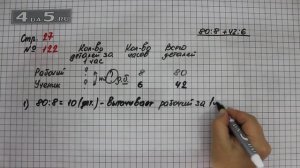 4 DA 5 RU
80:8 + 42:6
Стр. 27
№ 122
Кол-во деталей за 1 час
Кол-во часов
Всего деталей
Рабочий ? 8 80
Ученик ? 6 42
1) 80:8 = 10 (шт.) - вытачивает рабочий за 1